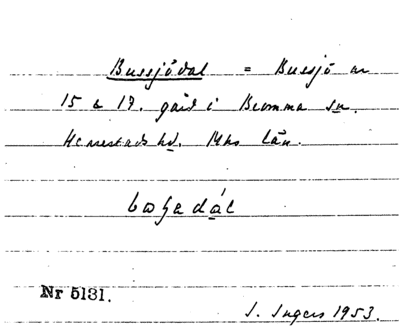 Bussjödal = Bussjö nr
15 & 17. gård i Bromma sn.
Herrestads hd. Mhs län.
bosадál
Nr 5131.
I. Ingers 1953.